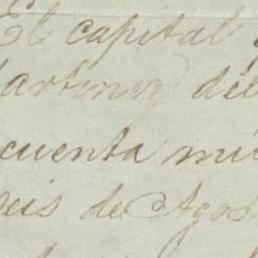 El capital
artinez del
cuenta mil
seis de Agos